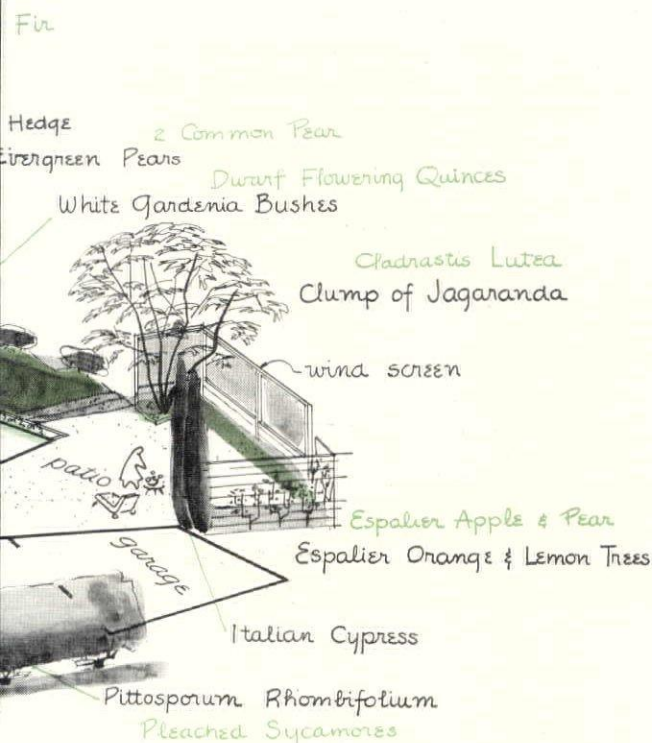 Fir
Hedge
2 Common Pear
Evergreen Pears
Dwarf Flowering Quinces
White Gardenia Bushes
Cladrastis Lutea
Clump of Jagaranda
wind screen
patio
Espalier Apple & Pear
garage
Espalier Orange & Lemon Trees
Italian Cypress
Pittosporum Rhombifolium
Pleached Sycamores